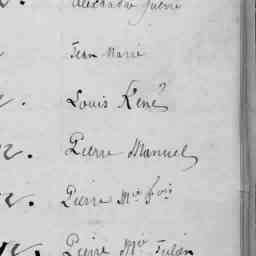 Alexandre
Jean Marie
Louis René
Pierre Manuel
Pierre Mie
Pierre Mie Julien